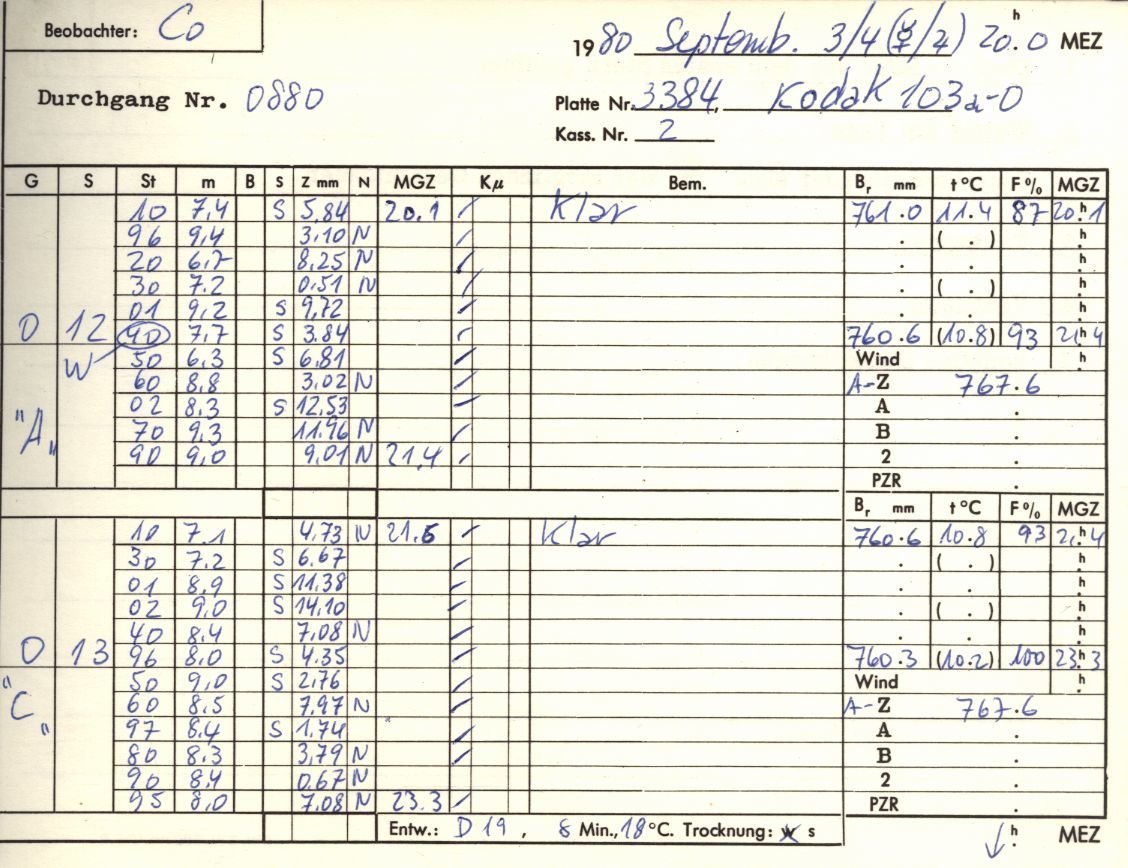 Beobachter: Co
1980 Septemb. 3/4 (☿/♃) 20.h0 MEZ
Durchgang Nr. 0880
Platte Nr. 3384, Kodak 103a-O
Kass. Nr. 2
G S St m B S Z mm N MGZ Kμ Bem. Br mm t °C F % MGZ
10 7,4 S 5,84 20.1 / Klar 761.0 11.4 87 20.h1
96 9,4 3,10 N / . ( . ) h
20 6,7 8,25 N / . . h
30 7.2 0,51 N / . ( . ) h
01 9,2 S 9,72 / . . h
0 12 40 7,7 S 3.84 / 760.6 (10.8) 93 21.h4
W 50 6,3 S 6,81 / Wind h
60 8,8 3,02 N / A-Z 767.6
02 8,3 S 12,53 / A .
"A" 70 9,3 11,96 N / B .
90 9,0 9,01 N 21,4 / 2 .
PZR .
Br mm t °C F % MGZ
10 7.1 4,73 N 21,5 / Klar 760.6 10.8 93 21.h4
30 7.2 S 6.67 / . ( . ) h
01 8,9 S 11,38 / . . h
02 9,0 S 14,10 / . ( . ) h
40 8.4 7,08 N / . . h
0 13 96 8,0 S 4.35 / 760.3 (10.2) 100 23.h3
"C" 50 9,0 S 2,76 / Wind h
60 8.5 7,97 N / A-Z 767.6
97 8.4 S 1,74 / A .
80 8.3 3,79 N / B .
90 8.4 0,67 N 2 .
95 8,0 7,08 N 23.3 / PZR .
Entw.: D 19, 8 Min., 18 °C. Trocknung: w s h. MEZ